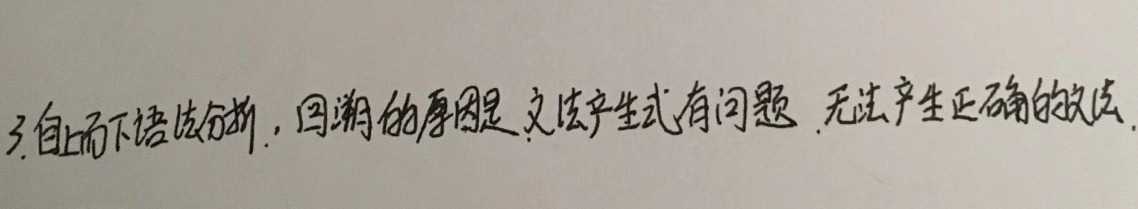 3.自上而下语法分析，回溯的原因是文法产生式有问题.无法产生正确的文法.